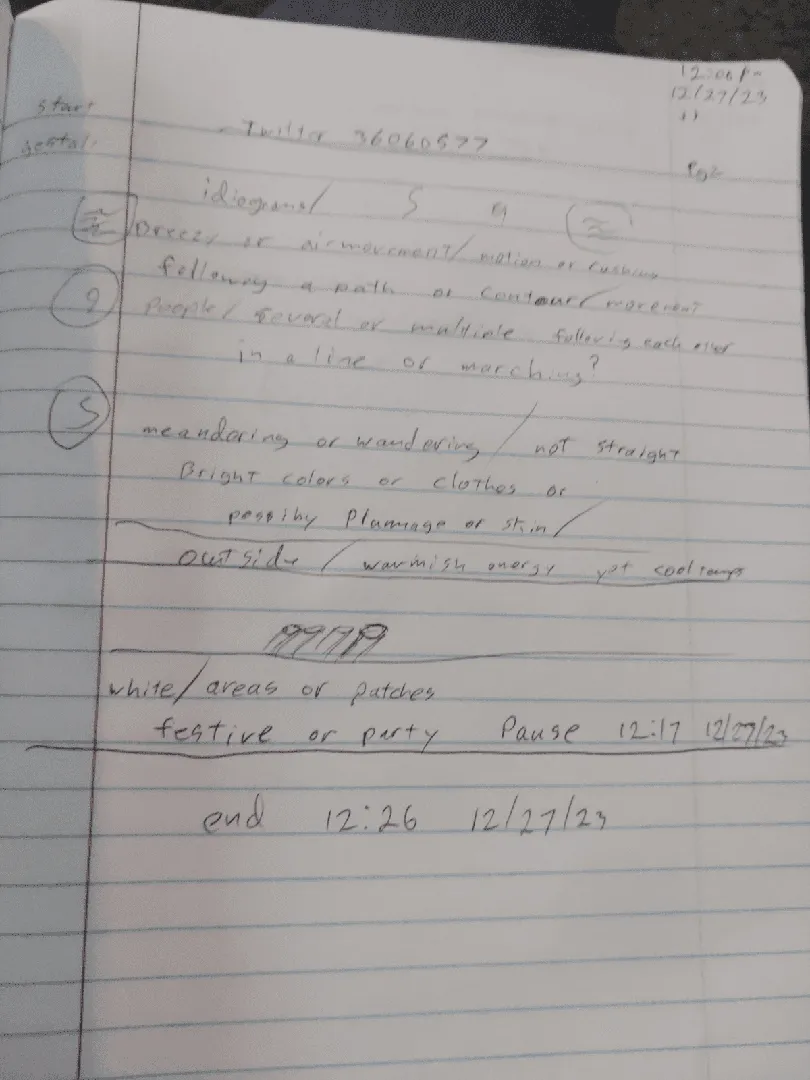 12:06 Pm
12/27/23
pg2
start
gestal
- Twitter 36060577
idiograms/ S 9
Breezy or air movement/ motion or rushing
following a path or contour/ movement
9 People/ Several or multiple following each other
in a line or marching?
S
meandering or wandering / not straight
Bright colors or clothes or
possiby Plumage or skin/
outside / warmish energy yet cool temps
white/areas or patches
festive or party Pause 12:17 12/27/23
end 12:26 12/27/23